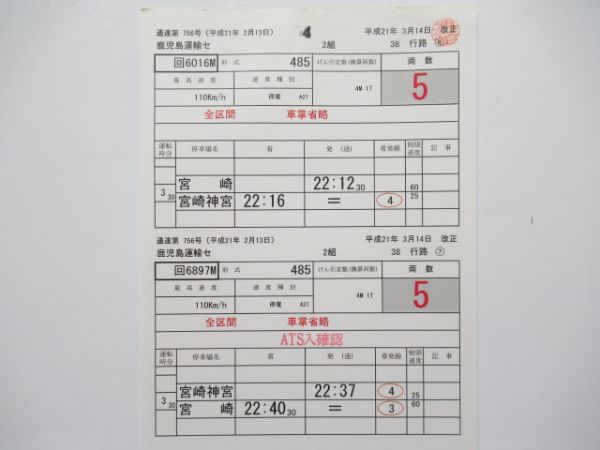 通達第 756号 (平成21年 2月13日) 4 平成21年 3月14日 改正
鹿児島運輸セ 2組 38 行路 ⑥
回6016M 形式 485 けん引定数(換算両数) 両数
最高速度 速度種別 4M 1T 5
110Km/h 停電 A27
全区間 車掌省略
運転時分 停車場名 着 発(通) 着発線 制限速度 記事
宮崎 22:12 30 60
3 30 宮崎神宮 22:16 = 4 25
通達第 756号 (平成21年 2月13日) 平成21年 3月14日 改正
鹿児島運輸セ 2組 38 行路 ⑦
回6897M 形式 485 けん引定数(換算両数) 両数
最高速度 速度種別 4M 1T 5
110Km/h 停電 A27
全区間 車掌省略
ATS入確認
運転時分 停車場名 着 発(通) 着発線 制限速度 記事
宮崎神宮 22:37 4 25
3 30 宮崎 22:40 30 = 3 60